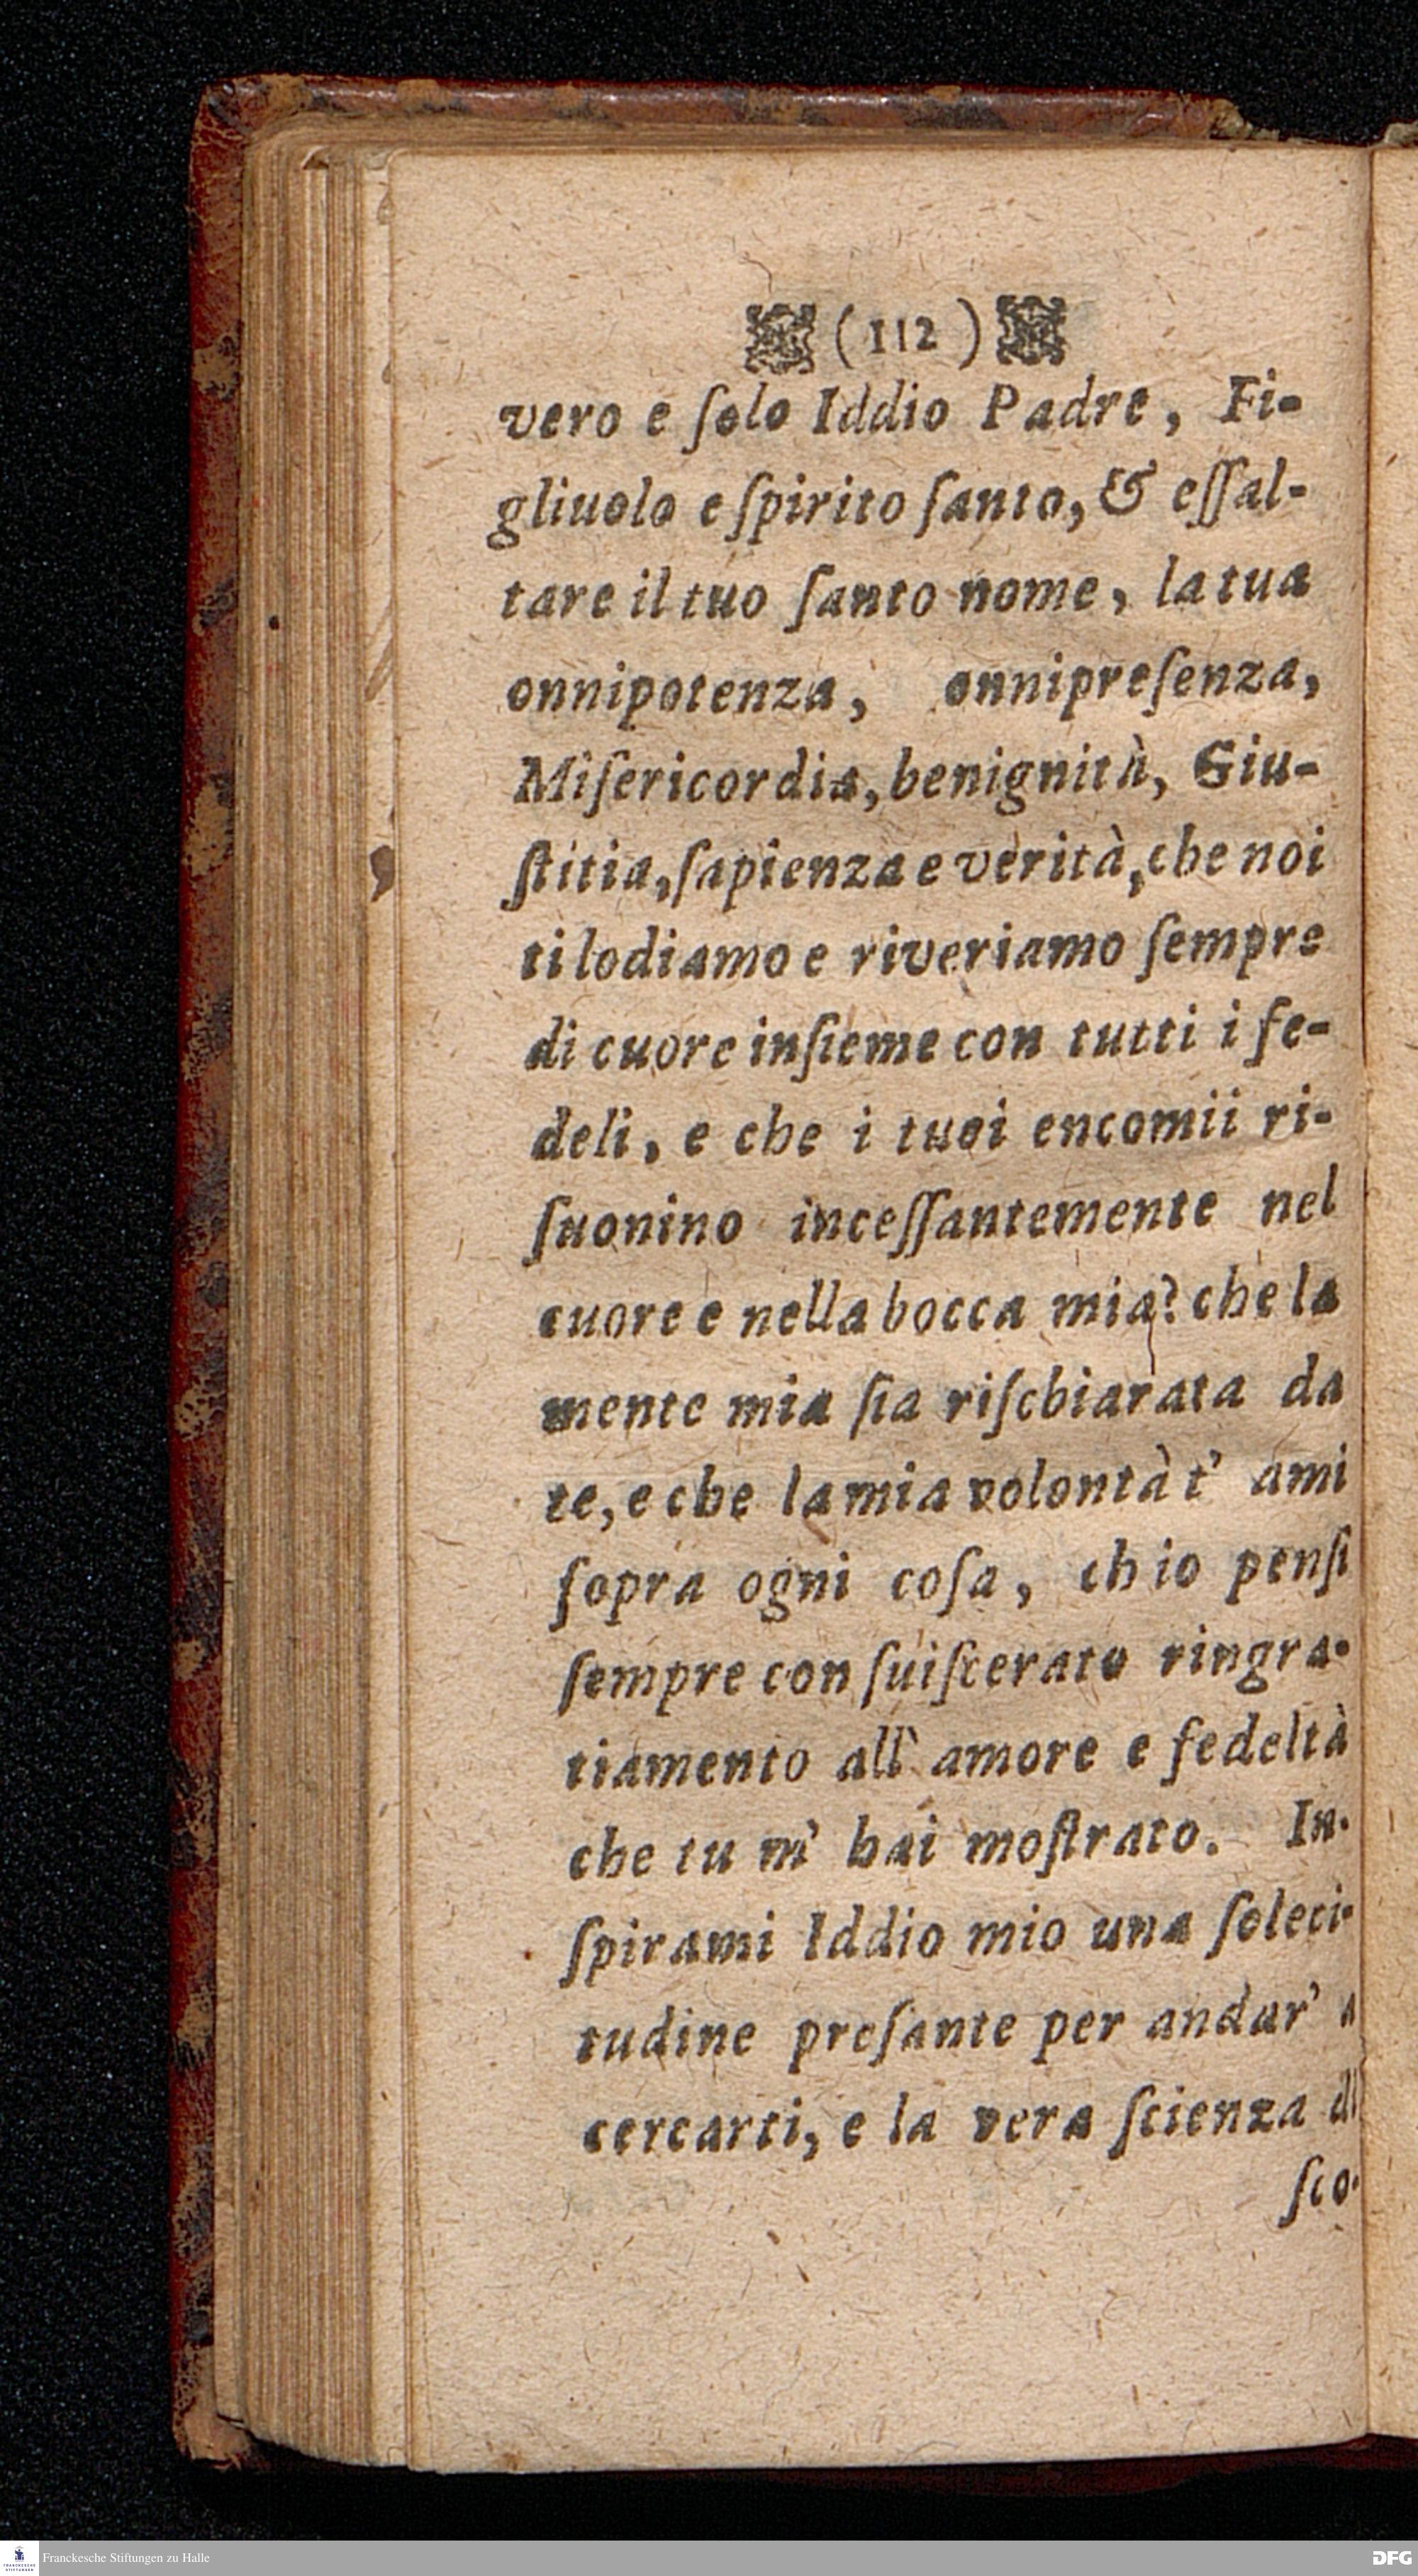 (112)
vero e ſolo Iddio Padre, Fi-
gliuolo e ſpirito ſanto, & eſſal-
tare il tuo ſanto nome, la tua
onnipotenza, onnipreſenza,
Miſericordia, benignità, Giu-
ſtitia, ſapienza e verità, che noi
ti lodiamo e riveriamo ſempre
di cuore inſieme con tutti i fe-
deli, e che i tuoi encomii ri-
ſuonino inceſſantemente nel
cuore e nella bocca mia? che la
mente mia ſia riſchiarata da
te, e che la mia volontà t' ami
ſopra ogni coſa, ch io penſi
ſempre con ſuiſcerato ringra-
tiamento all' amore e fedeltà
che tu m' hai moſtrato. In-
ſpirami Iddio mio una ſoleci-
tudine preſante per andar' a
cercarti, e la vera ſcienza di
ſco-
Franckesche Stiftungen zu Halle
DFG